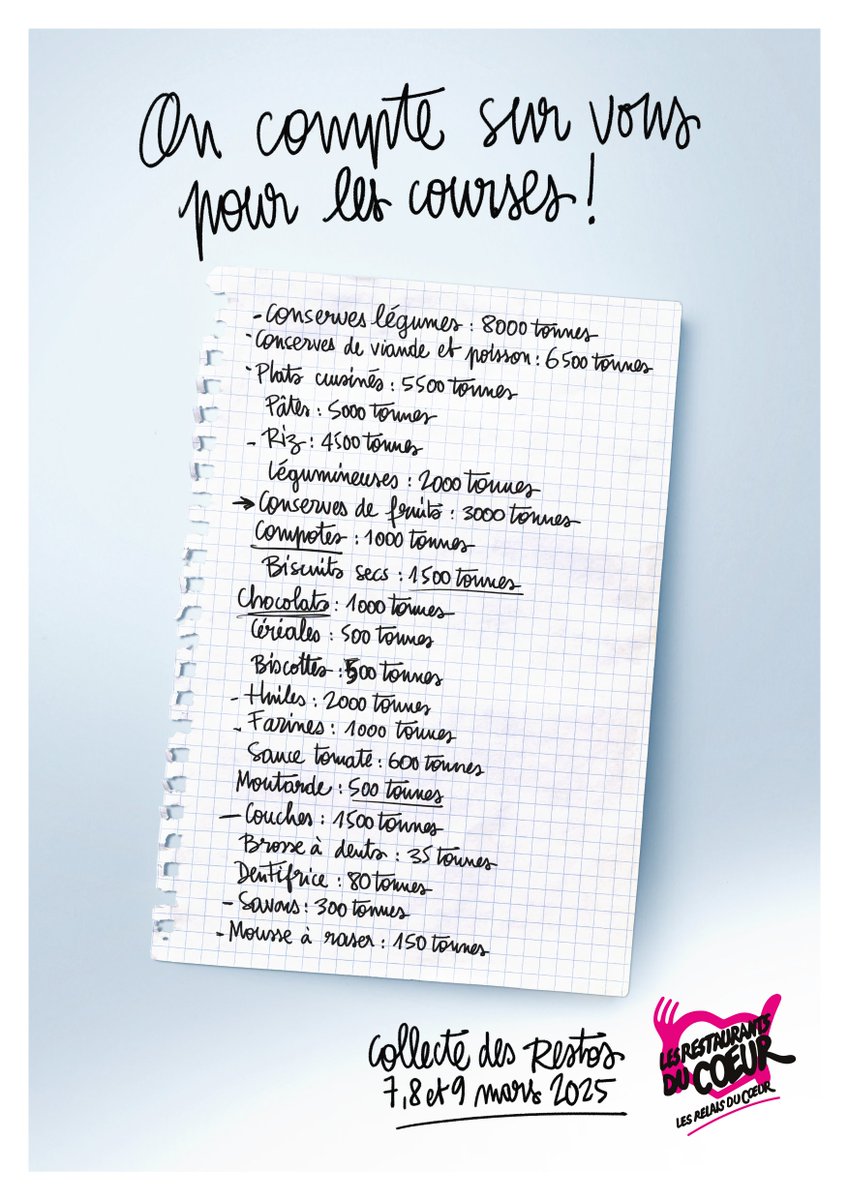 On compte sur vous
pour les courses !
- Conserves légumes : 8000 tonnes
- Conserves de viande et poisson : 6500 tonnes
- Plats cuisinés : 5500 tonnes
Pâtes : 5000 tonnes
- Riz : 4500 tonnes
Légumineuses : 2000 tonnes
→ Conserves de fruits : 3000 tonnes
Compotes : 1000 tonnes
Biscuits secs : 1500 tonnes
Chocolats : 1000 tonnes
Céréales : 500 tonnes
Biscottes : 500 tonnes
- Huiles : 2000 tonnes
- Farines : 1000 tonnes
Sauce tomate : 600 tonnes
Moutarde : 500 tonnes
- Couches : 1500 tonnes
Brosse à dents : 35 tonnes
Dentifrice : 80 tonnes
- Savons : 300 tonnes
- Mousse à raser : 150 tonnes
Collecte des Restos
7, 8 et 9 mars 2025
LES RESTAURANTS
DU CŒUR
LES RELAIS DU CŒUR